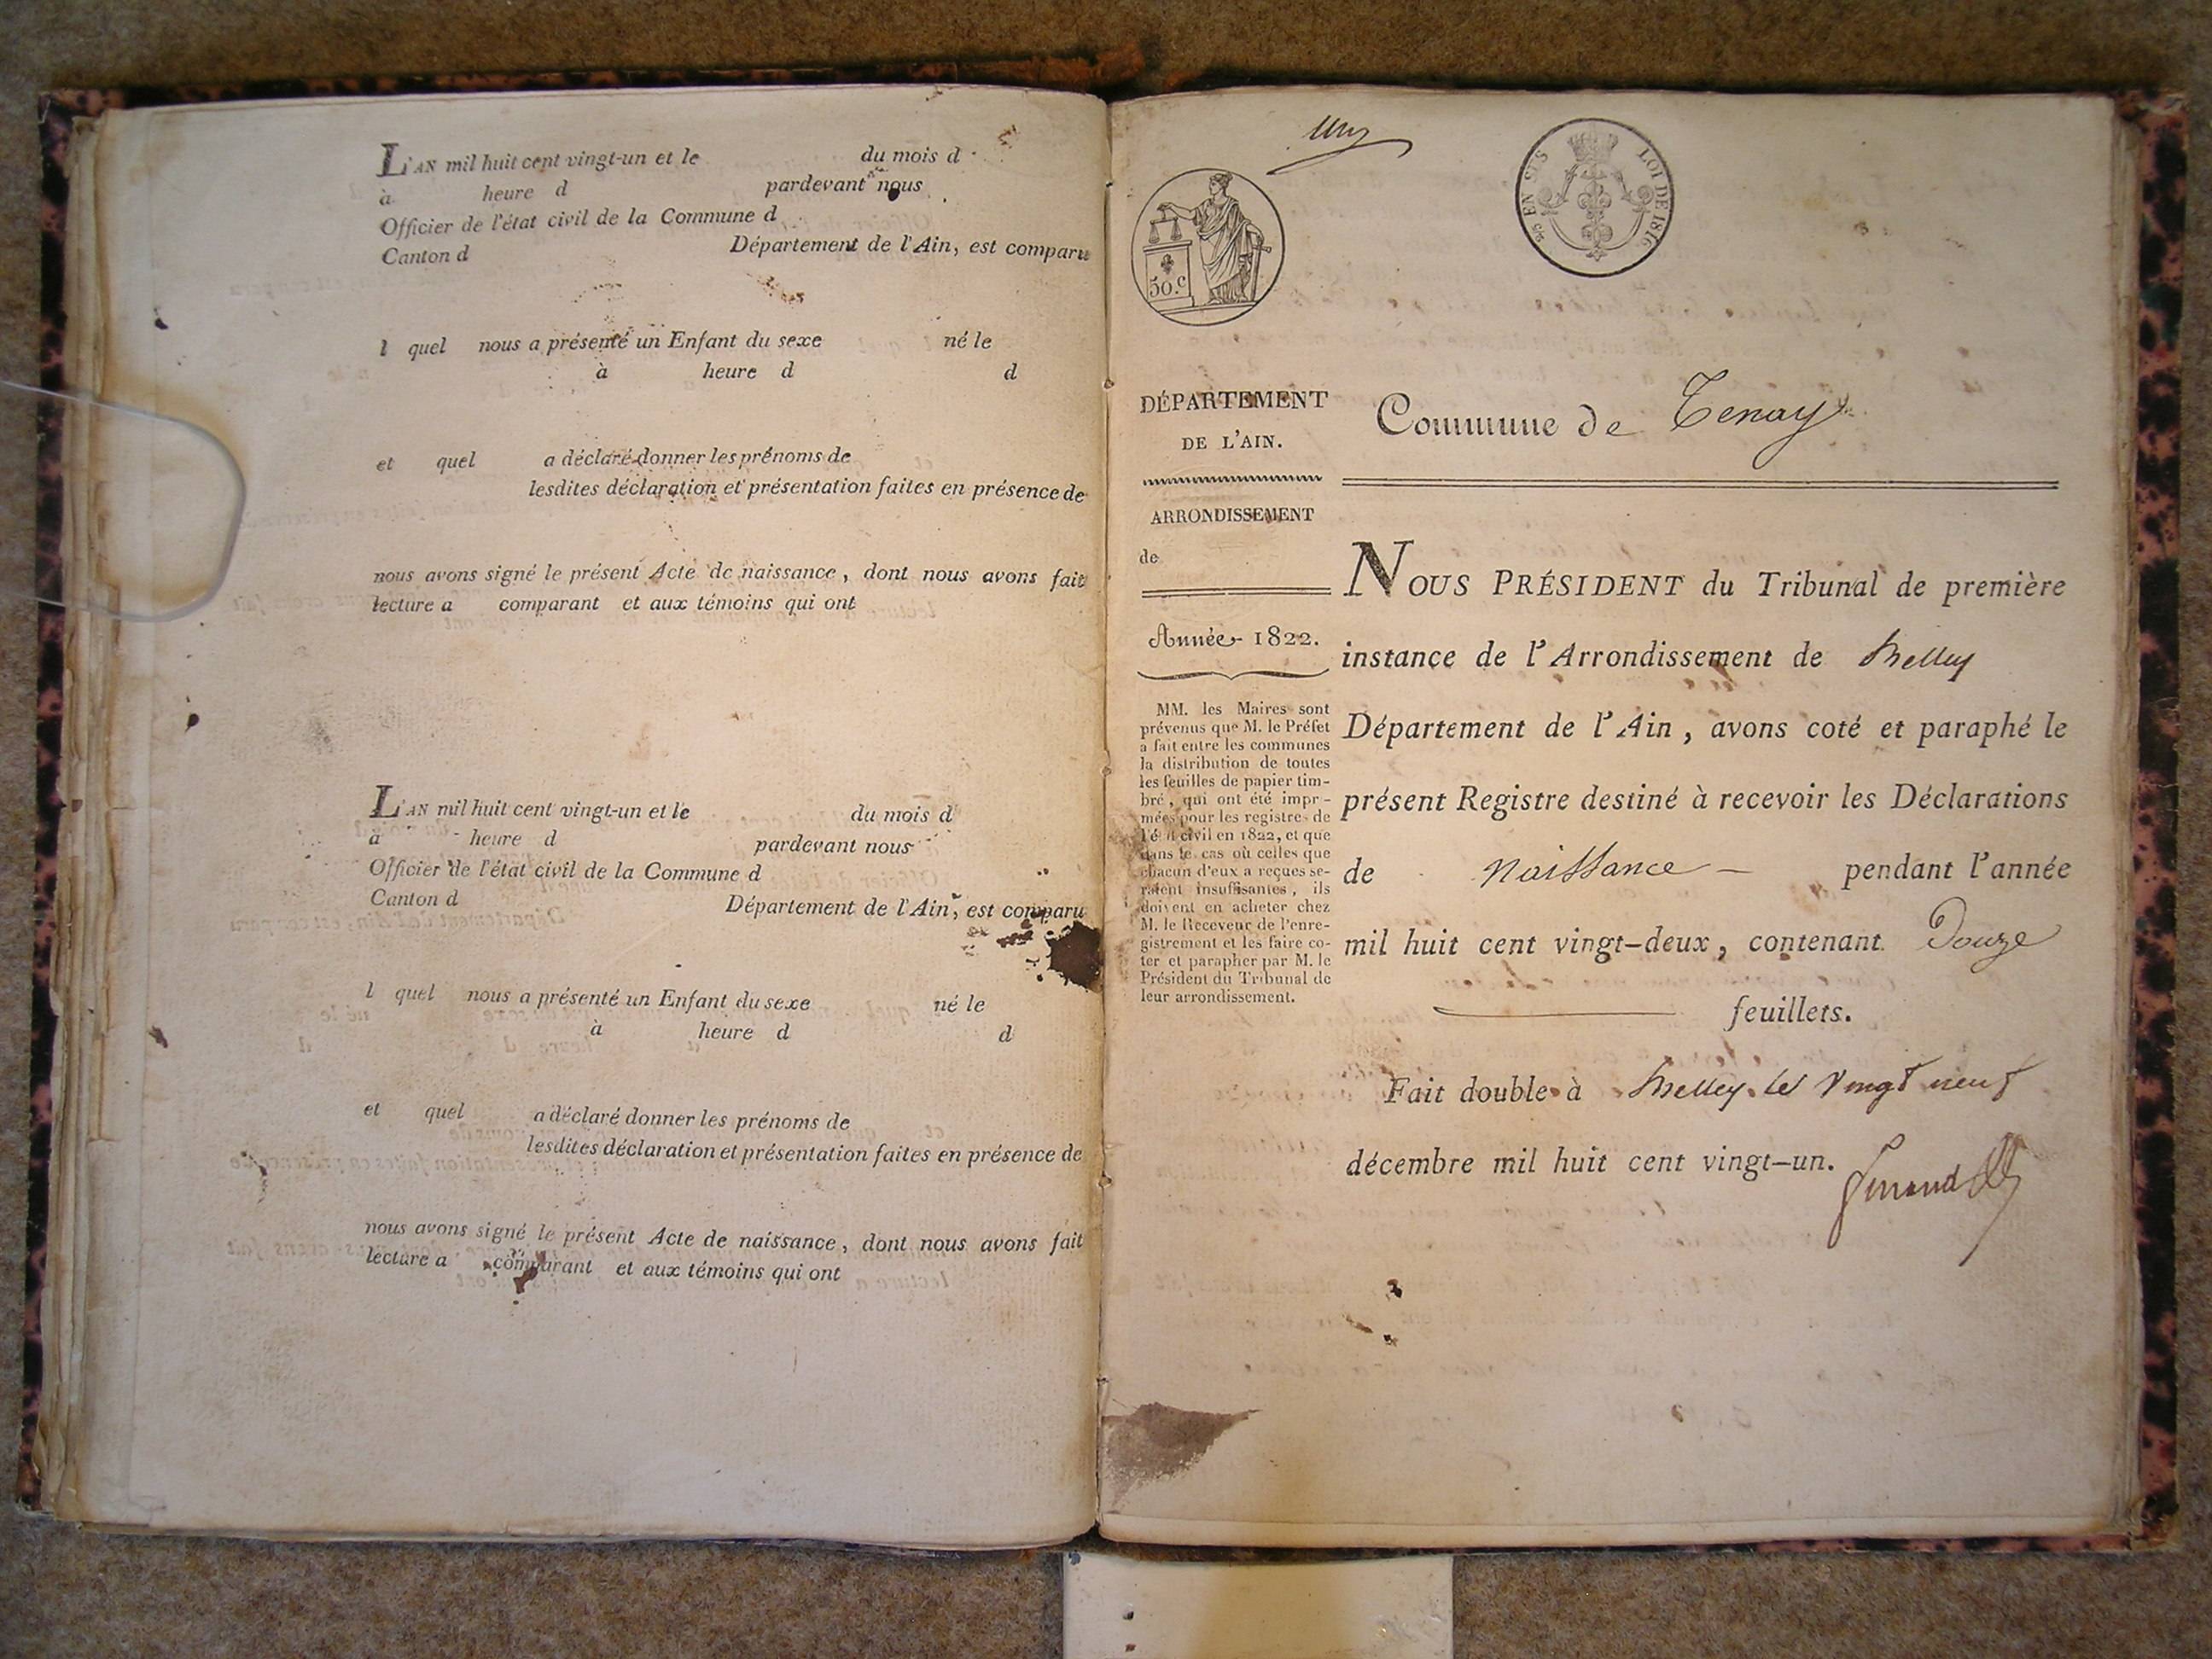 L'AN mil huit cent vingt-un et le du mois d
à heure d pardevant nous
Officier de l'état civil de la Commune d
Canton d Département de l'Ain, est comparu
l quel nous a présenté un Enfant du sexe né le
à heure d d
et quel a déclaré donner les prénoms de
lesdites déclaration et présentation faites en présence de
nous avons signé le présent Acte de naissance, dont nous avons fait
lecture a comparant et aux témoins qui ont
L'AN mil huit cent vingt-un et le du mois d
à heure d pardevant nous
Officier de l'état civil de la Commune d
Canton d Département de l'Ain, est comparu
l quel nous a présenté un Enfant du sexe né le
à heure d d
et quel a déclaré donner les prénoms de
lesdites déclaration et présentation faites en présence de
nous avons signé le présent Acte de naissance, dont nous avons fait
lecture a comparant et aux témoins qui ont
un
50.c
EN SUS LOI DE 1816
DÉPARTEMENT
DE L'AIN.
ARRONDISSEMENT
de
Année 1822.
MM. les Maires sont
prévenus que M. le Préfet
a fait entre les communes
la distribution de toutes
les feuilles de papier tim-
bré, qui ont été impr-
mées pour les registres de
l'état civil en 1822, et que
dans le cas où celles que
chacun d'eux a reçues se-
raient insuffisantes, ils
doivent en acheter chez
M. le Receveur de l'enre-
gistrement et les faire co-
ter et parapher par M. le
Président du Tribunal de
leur arrondissement.
Commune de Tenay
NOUS PRÉSIDENT du Tribunal de première
instance de l'Arrondissement de Belley
Département de l'Ain, avons coté et paraphé le
présent Registre destiné à recevoir les Déclarations
de Naissance — pendant l'année
mil huit cent vingt-deux, contenant Douze
feuillets.
Fait double à Belley le vingt neuf
décembre mil huit cent vingt-un.